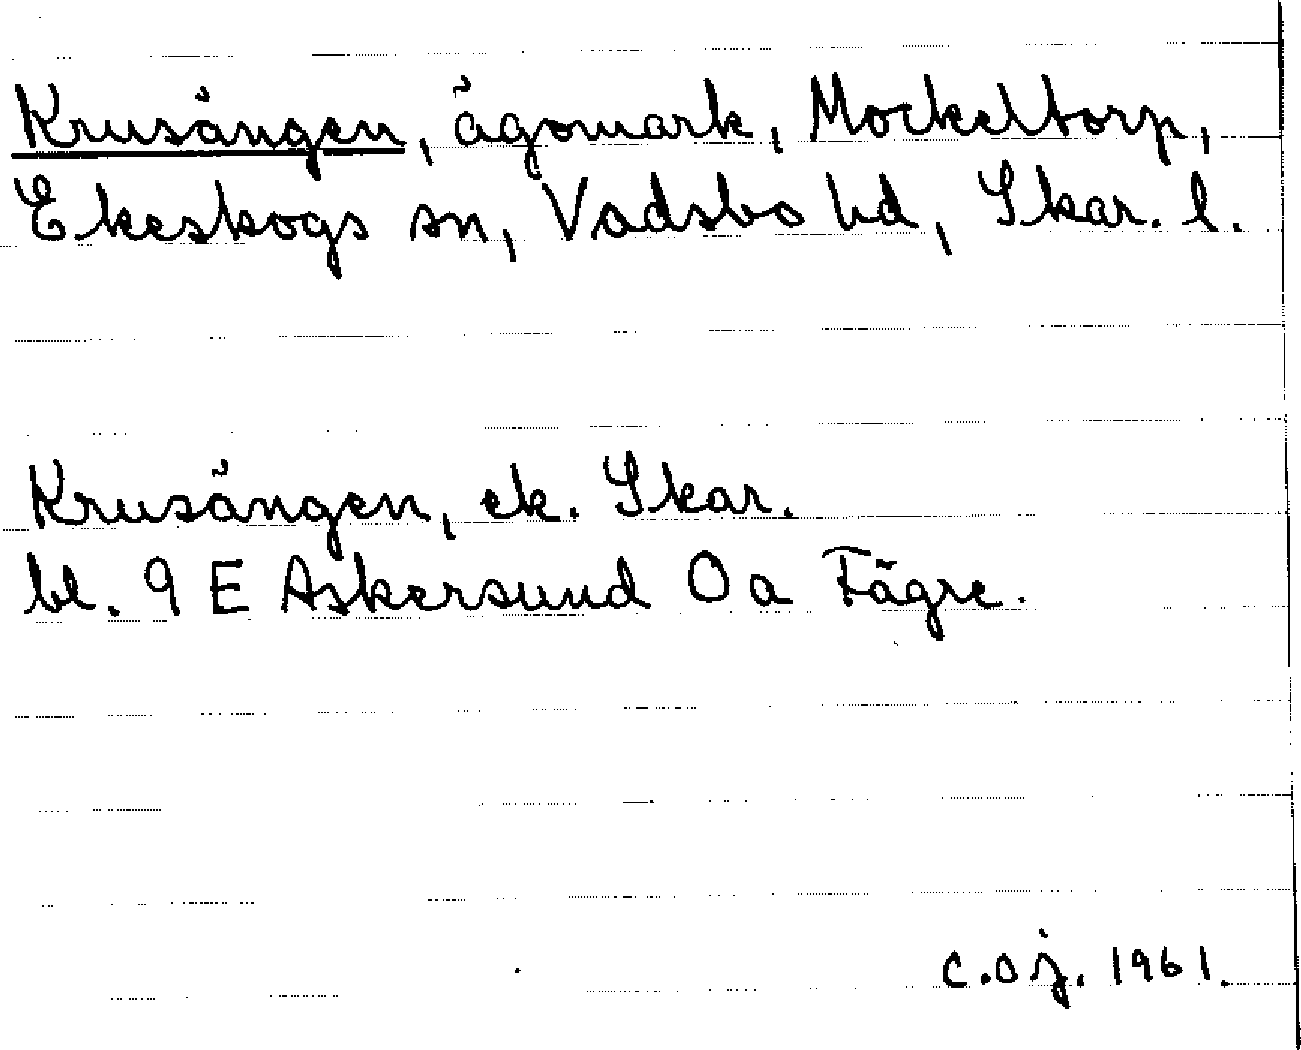 Krusängen, ägomark, Mockeltorp,
Ekeskogs sn, Vadsbo hd, Skar. l.
Krusängen, ek. Skar.
bl. 9 E Askersund 0 a Fägre.
C.O.j. 1961.